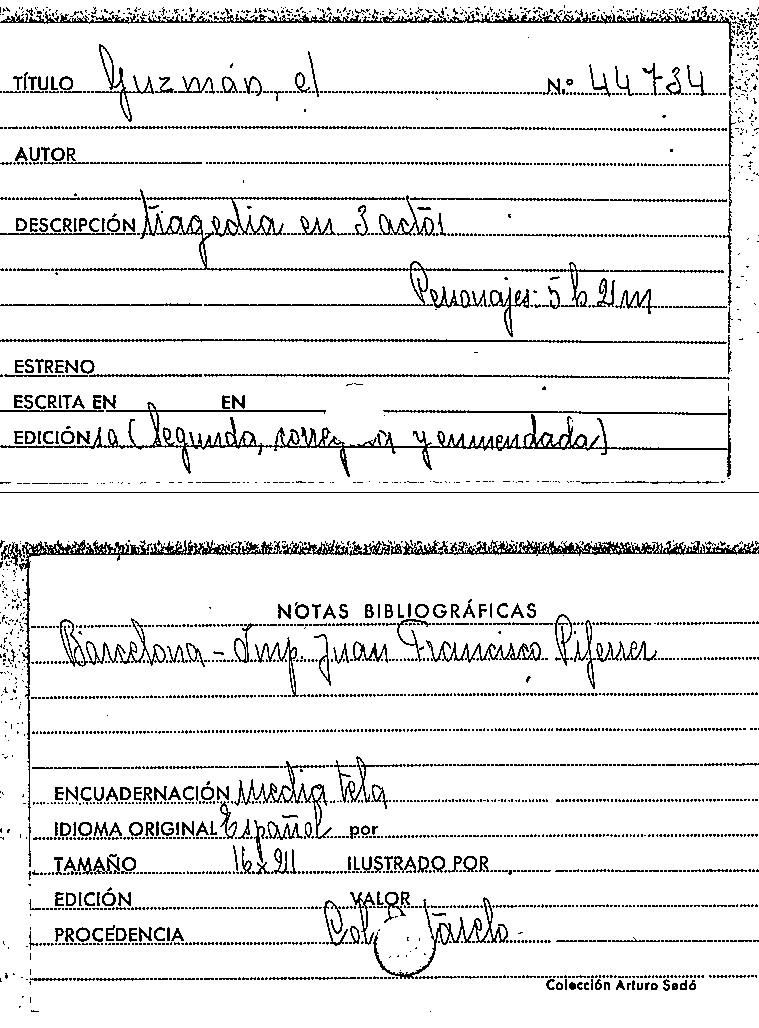 TÍTULO Guzmán, el N.º 44734
AUTOR
DESCRIPCIÓN tragedia en 3 actos
Personajes: 5 h 2 m
ESTRENO
ESCRITA EN EN
EDICIÓN 1a (Segunda, y enmendada)
NOTAS BIBLIOGRÁFICAS
Barcelona - Imp. Juan Francisco Piferrer
ENCUADERNACIÓN Media tela
IDIOMA ORIGINAL Español por
TAMAÑO 16 x 21 ILUSTRADO POR
EDICIÓN VALOR
PROCEDENCIA Col.
Colección Arturo Sedó